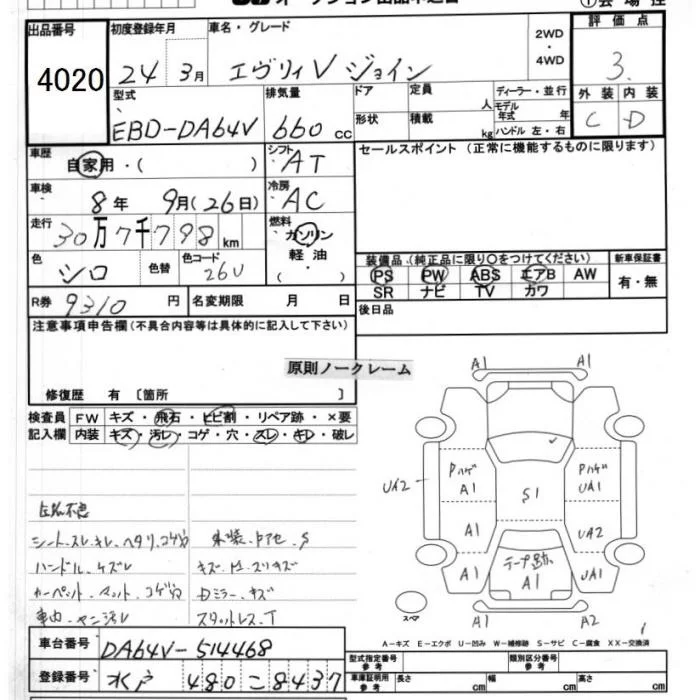 出品番号 4020
初度登録年月 24 3月
車名・グレード エヴリィV ジョイン
2WD・4WD
評価点 3.
外装 内装
C D
型式 EBD-DA64V
排気量 660 cc
ドア 形状
定員 人
積載 kg
ディーラー・並行
モデル年式 年
ハンドル 左・右
車歴 自家用・( )
シフト AT
セールスポイント (正常に機能するものに限ります)
車検 8年 9月(26日)
冷房 AC
走行 30万7千798km
燃料 ガソリン・軽油・( )
色 シロ 色替 色コード 26U
装備品 (純正品に限り○をつけてください)
新車保証書
PS PW ABS エアB AW
有・無
SR ナビ TV カワ
R券 9310円
名変期限 月 日
後日品
注意事項申告欄(不具合内容等は具体的に記入して下さい)
原則ノークレーム
修復歴 有〔箇所 〕
検査員 FW キズ・飛石・ヒビ割・リペア跡・×要
記入欄 内装 キズ・汚レ・コゲ・穴・スレ・キレ・破レ
A1 A1
Pハゲ A1
Pハゲ UA1
UA2
S1
A1
UA2
テープ跡 A1
A1
UA1
A1 A2
スペア
シート.スレ.キレ.ヘタリ.コゲ穴
ハンドル.ケズレ
カーペット.マット.コゲ穴
車内.ヤニ汚レ
スタットレス.T
A-キズ E-エクボ U-凹み W-補修跡 S-サビ C-腐食 XX-交換済
車台番号 DA64V-514468
登録番号 水戸 480 こ 8437
型式指定番号 参考
類別区分番号 参考
車庫証明用 参考
長さ cm 幅 cm 高さ cm